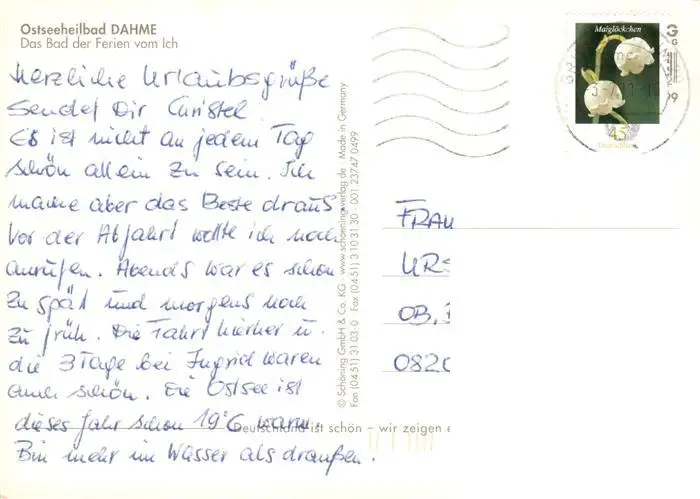 Ostseeheilbad DAHME
Das Bad der Ferien vom Ich
Herzliche Urlaubsgrüße
sendet Dir Christel
Es ist nicht an jedem Tag
schön allein zu sein. Ich
mache aber das Beste draus
Vor der Abfahrt wollte ich noch
anrufen. Abends war es schon
zu spät und morgens noch
zu früh. Die Fahrt hierher u.
die 3 Tage bei Ingrid waren
auch schön. Die Ostsee ist
dieses Jahr schon 19°C warm.
Bin mehr im Wasser als draußen.
© Schöning GmbH & Co. KG · www.schoening-verlag.de · Made in Germany
Fon (04 51) 31 03-0 · Fax (04 51) 3 10 31 30 · 001 23747 0499
Maiglöckchen
45
Deutschland
FRAU
UR
OB.
082
Deutschland ist schön – wir zeigen e